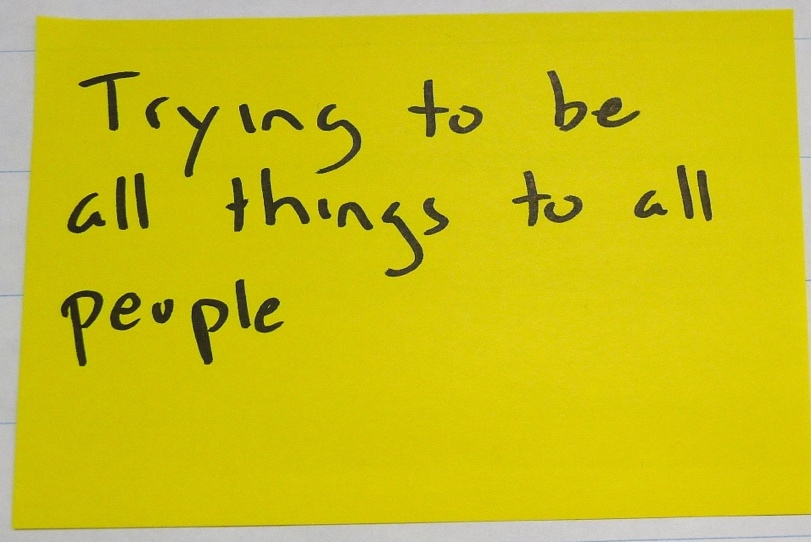 Trying to be
all things to all
people